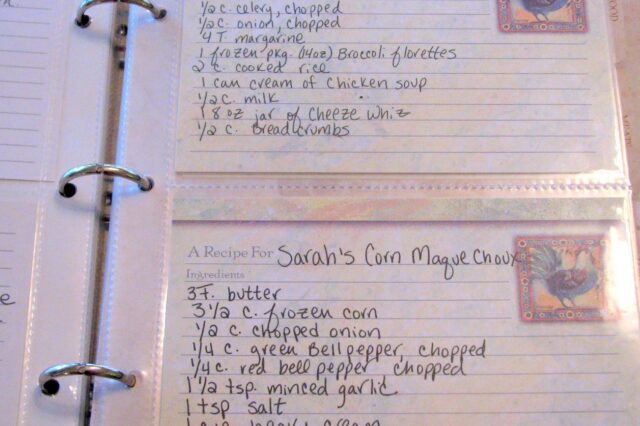 1/2 c. celery, chopped
1/2 c. onion, chopped
4 T margarine
1 frozen pkg. (14oz) Broccoli florettes
2 c. cooked rice
1 can cream of chicken soup
1/2 c. milk
1 8 oz jar of Cheeze Whiz
1/2 c. Breadcrumbs
A Recipe For Sarah's Corn Maque Choux
Ingredients
3T. butter
3 1/2 c. frozen corn
1/2 c. chopped onion
1/4 c. green Bell pepper, chopped
1/4 c. red bell pepper chopped
1 1/2 tsp. minced garlic
1 tsp salt
heavy cream